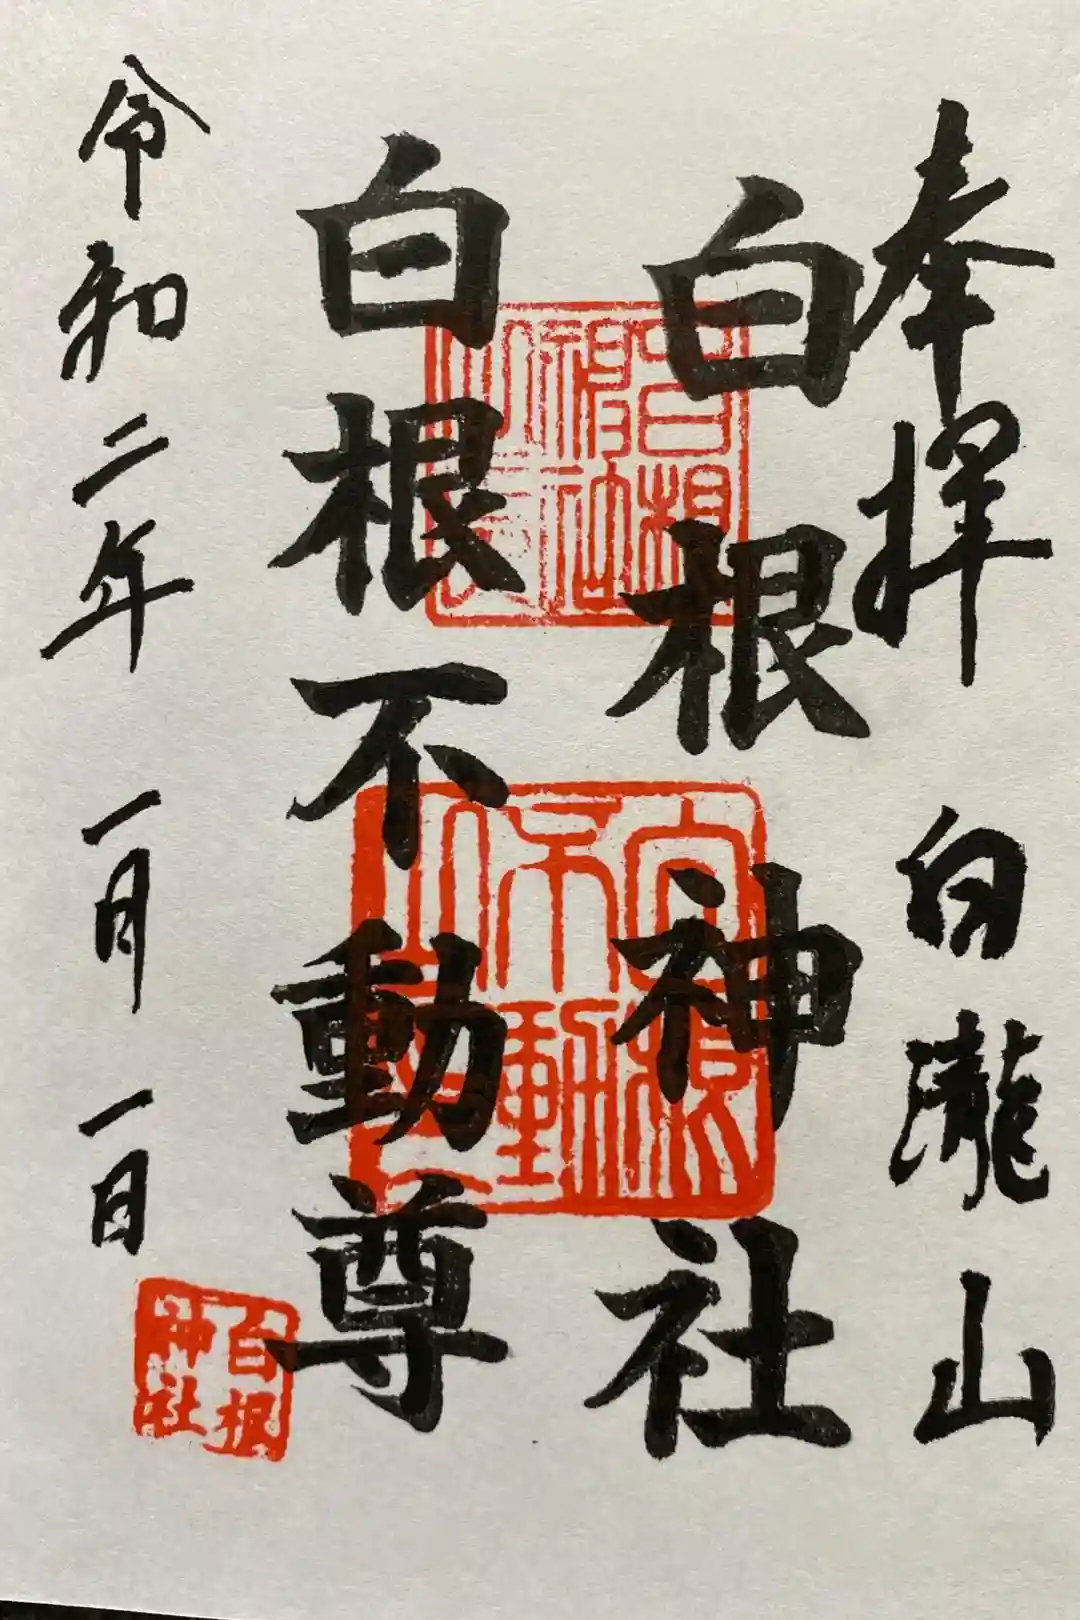 奉拝 白瀧山
白根神社
白根不動尊
令和二年 一月 一日
白根
神社